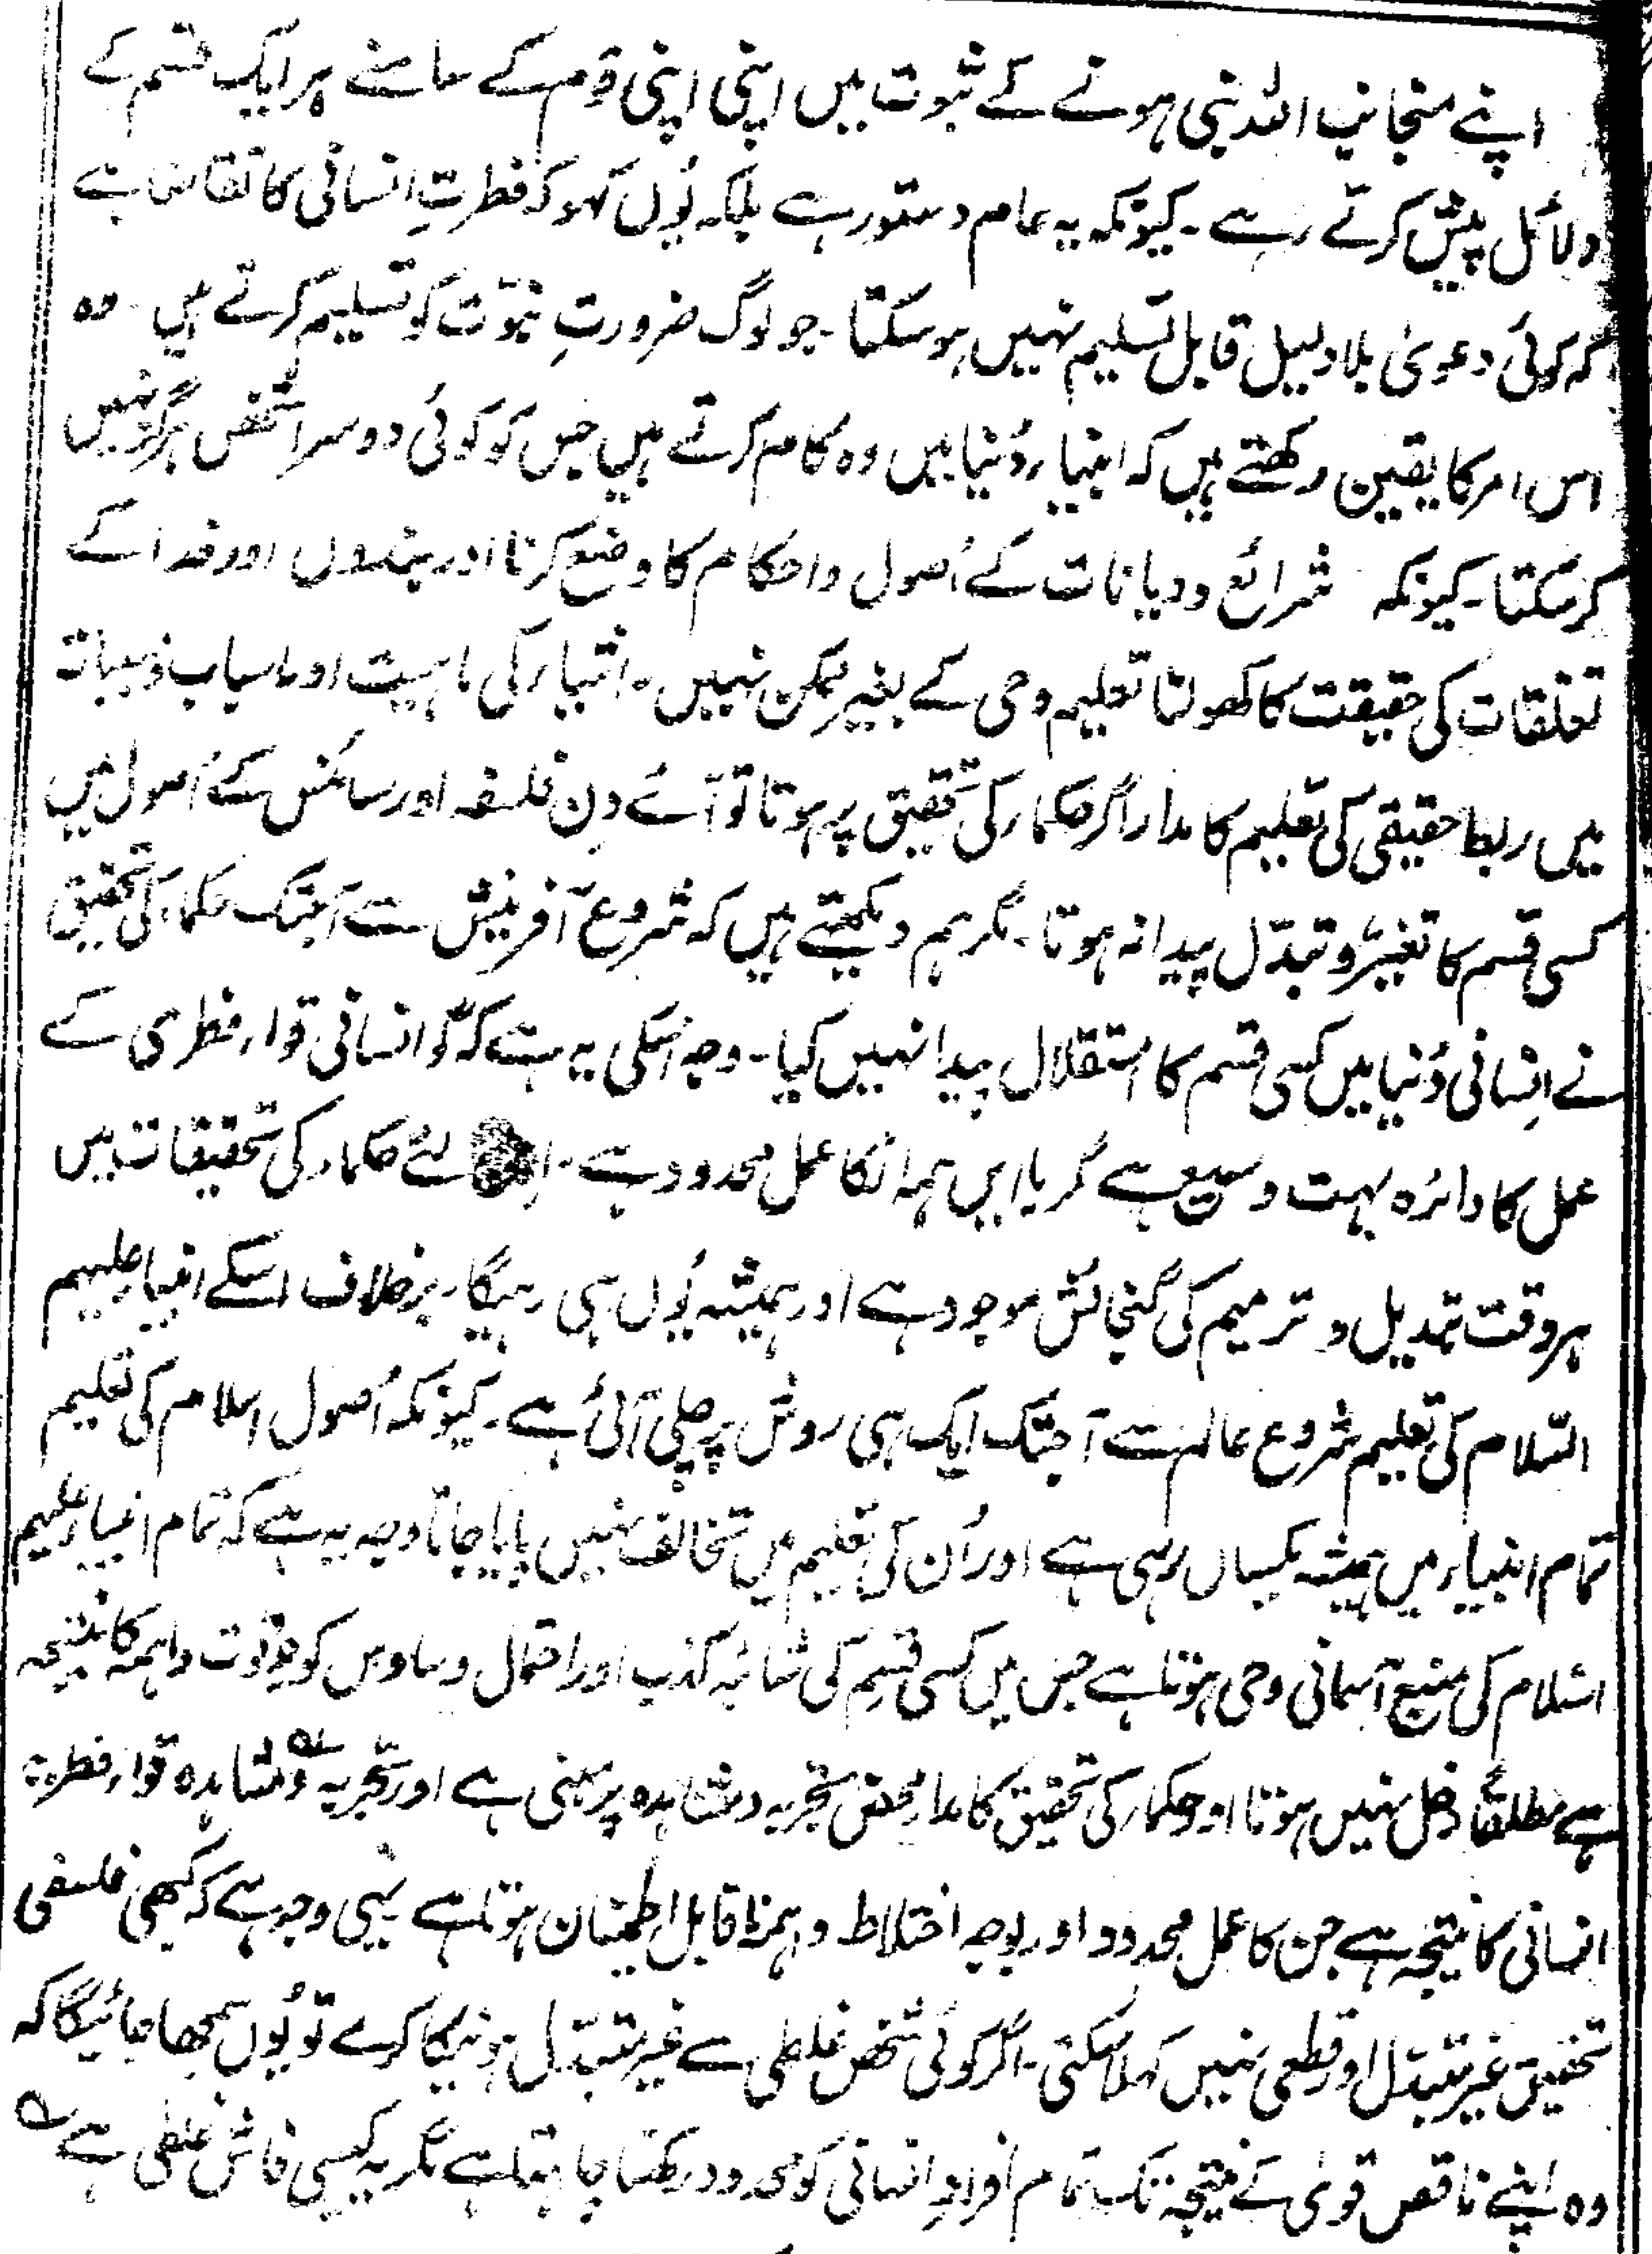 اپنے منجانب اللہ نبی ہونے کے ثبوت میں اپنی اپنی قوم کے سامنے ہر ایک قسم کے
دلائل پیش کرتے رہے ۔ کیونکہ یہ عام دستور ہے بلکہ یُوں کہو کہ فطرتِ انسانی کا تقاضا ہے
کہ کوئی دعویٰ بلا دلیل قابل تسلیم نہیں ہو سکتا ۔ جو لوگ ضرورتِ نبوّت کو تسلیم کرتے ہیں ۔ وہ
اس امر کا یقین رکھتے ہیں کہ انبیاء دُنیا میں وہ کام کرتے ہیں جس کو کوئی دوسرا شخص ہرگز نہیں
کر سکتا ۔ کیونکہ شرائع و دیانات کے اُصول و احکام کا وضع کرنا اور بندوں اور خدا کے
تعلقات کی حقیقت کا کھولنا تعلیم وحی کے بغیر ممکن نہیں ۔ اشیاء کی ماہیت اور اسباب و مسببات
میں ربط حقیقی کی تعلیم کا مدار اگر حکماء کی تحقیق پر ہوتا تو آئے دِن فلسفہ اور سائنس کے اُصول میں
کسی قسم کا تغیّر و تبدّل پیدا نہ ہوتا ۔ مگر ہم دیکھتے ہیں کہ شروع آفرینش سے آجتک حکماء کی تحقیق
نے اِنسانی دُنیا میں کسی قسم کا استقلال پیدا نہیں کیا ۔ وجہ اسکی یہ ہے کہ گو انسانی قواء فطری کے
عمل کا دائرہ بہت وسیع ہے مگر باایں ہمہ انکا عمل محدود ہے ۔ لئے حکماء کی تحقیقات میں
ہر وقت تبدیل و ترمیم کی گنجائش موجود ہے اور ہمیشہ یُوں ہی رہیگا ۔ برخلاف اسکے انبیاء علیہم
السّلام کی تعلیم شروع عالم سے آجتک ایک ہی روش پر چلی آئی ہے ۔ کیونکہ اُصول اسلام کی تعلیم
تمام انبیاء میں ہمیشہ یکساں رہی ہے اور اُن کی تعلیم میں تخالف نہیں پایا جاتا وجہ یہ ہے کہ تمام انبیاء علیہم
السّلام کی منبع آسمانی وحی ہوتا ہے جس میں کسی قسم کی شائبہ کذب اور احتمال وساوس کو جو قوت واہمہ کا نتیجہ
ہے مطلقًا دخل نہیں ہوتا اور حکماء کی تحقیق کا مدار محض تجربہ و مشاہدہ پر مبنی ہے اور تجربہ و مشاہدہ قواء فطریہ
انسانی کا نتیجہ ہے جن کا عمل محدود اور بوجہ اختلاط وہم ناقابل اطمینان ہوتا ہے یہی وجہ ہے کہ کبھی فلسفی
تحقیق غیر متبدّل اور قطعی نہیں کہلا سکتی ۔ اگر کوئی شخص غلطی سے غیر متبدّل ہونیکا کرے تو یُوں سمجھا جائیگا کہ
وہ اپنے ناقص قویٰ کے نتیجہ تک تمام افرادِ انسانی کو محدود رکھنا چاہتا ہے مگر یہ کیسی فاش غلطی ہے